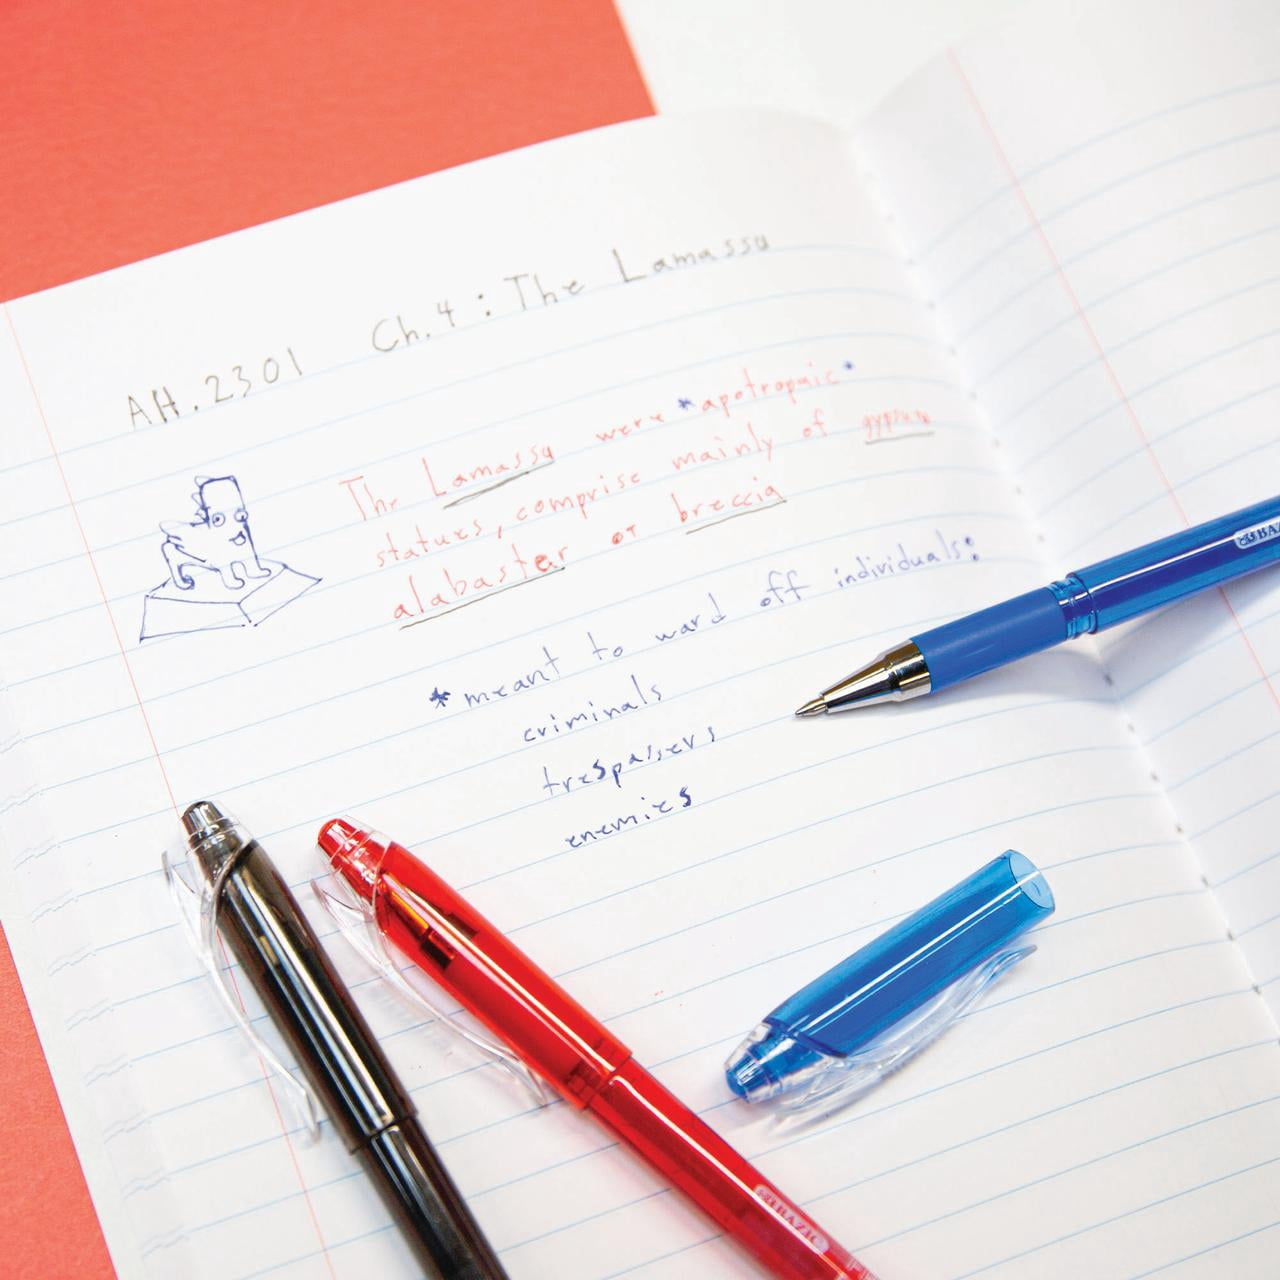 AH.2301 Ch.4: The Lamassu
The Lamassu were *apotropaic*
statues, comprise mainly of gypsum
alabaster or breccia
*meant to ward off individuals:
criminals
trespassers
enemies
BAZIC